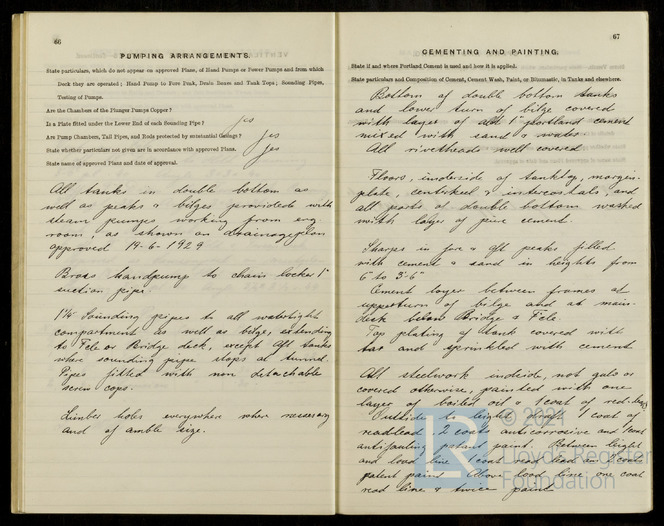 66
PUMPING ARRANGEMENTS.
State particulars, which do not appear on approved Plans, of Hand Pumps or Power Pumps and from which
Deck they are operated; Hand Pump to Fore Peak, Drain Boxes and Tank Tops; Sounding Pipes,
Testing of Pumps.
Are the Chambers of the Plunger Pumps Copper?
Is a Plate fitted under the Lower End of each Sounding Pipe? yes
Are Pump Chambers, Tail Pipes, and Rods protected by substantial Casings? yes
State whether particulars not given are in accordance with approved Plans. yes
State name of approved Plans and date of approval.
All tanks in double bottom as
well as peaks & bilges provided with
steam pumps working from eng
room, as shown on drainageplan
approved 14-6-1929
Brass handpump to chain locker 1"
suction pipe.
Sounding pipes to all watertight
compartment as well as bilge, extending
to F'cle or Bridge deck, except Aft tanks
where sounding pipe stops at tunnel.
Pipes fitted with non detachable
screw caps.
Limber holes everywhere where necessary
and of amble size.
67
CEMENTING AND PAINTING.
State if and where Portland Cement is used and how it is applied.
State particulars and Composition of Cement, Cement Wash, Paint, or Bitumastic, in Tanks and elsewhere.
Bottom of double bottom tanks
and lower turn of bilge covered
with layer of 1" portland cement
mixed with sand & water.
All rivetheads well covered
Floors, underside of tanktop, margin-
plate, centrkeel & intercostals, and
all parts of double bottom washed
with layer of pure cement.
Sharps in fore & aft peaks filled
with cement & sand in heights from
6" to 3'-6"
Cement layer between frames at
upperturn of bilge and at main-
deck below Bridge & F'cle.
Top plating of tank covered with
tar and sprinkled with cement
All steelwork inside, not galv or
covered otherwise, painted with one
layer of boiled oil & 1 coat of red-lead
Outside to light draft 1 coat of
readlead, 2 coats anticorrosive and 1 coat
antifouling patent paint. Between light
and load line 1 coat read lead and coat
patent paint. Above load line one coat
read line & twice paint
© 2021
LR
Lloyd's Register
Foundation